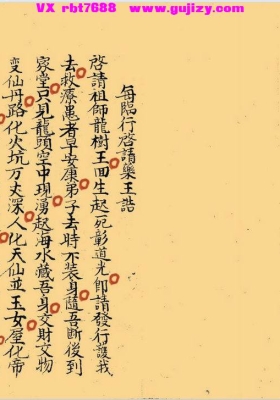 VX rbt7688 www.gujizy.com
每臨行啓請藥王誥
啓請祖師龍樹王回生起死彰道光即請發行護我
去救療患者早安康弟子去時不裝身隨吾斷後到
家堂只見龍頭空中現湧起海水藏吾身交財交物
变仙丹路化火坑万丈深人化天仙並玉女屋化帝